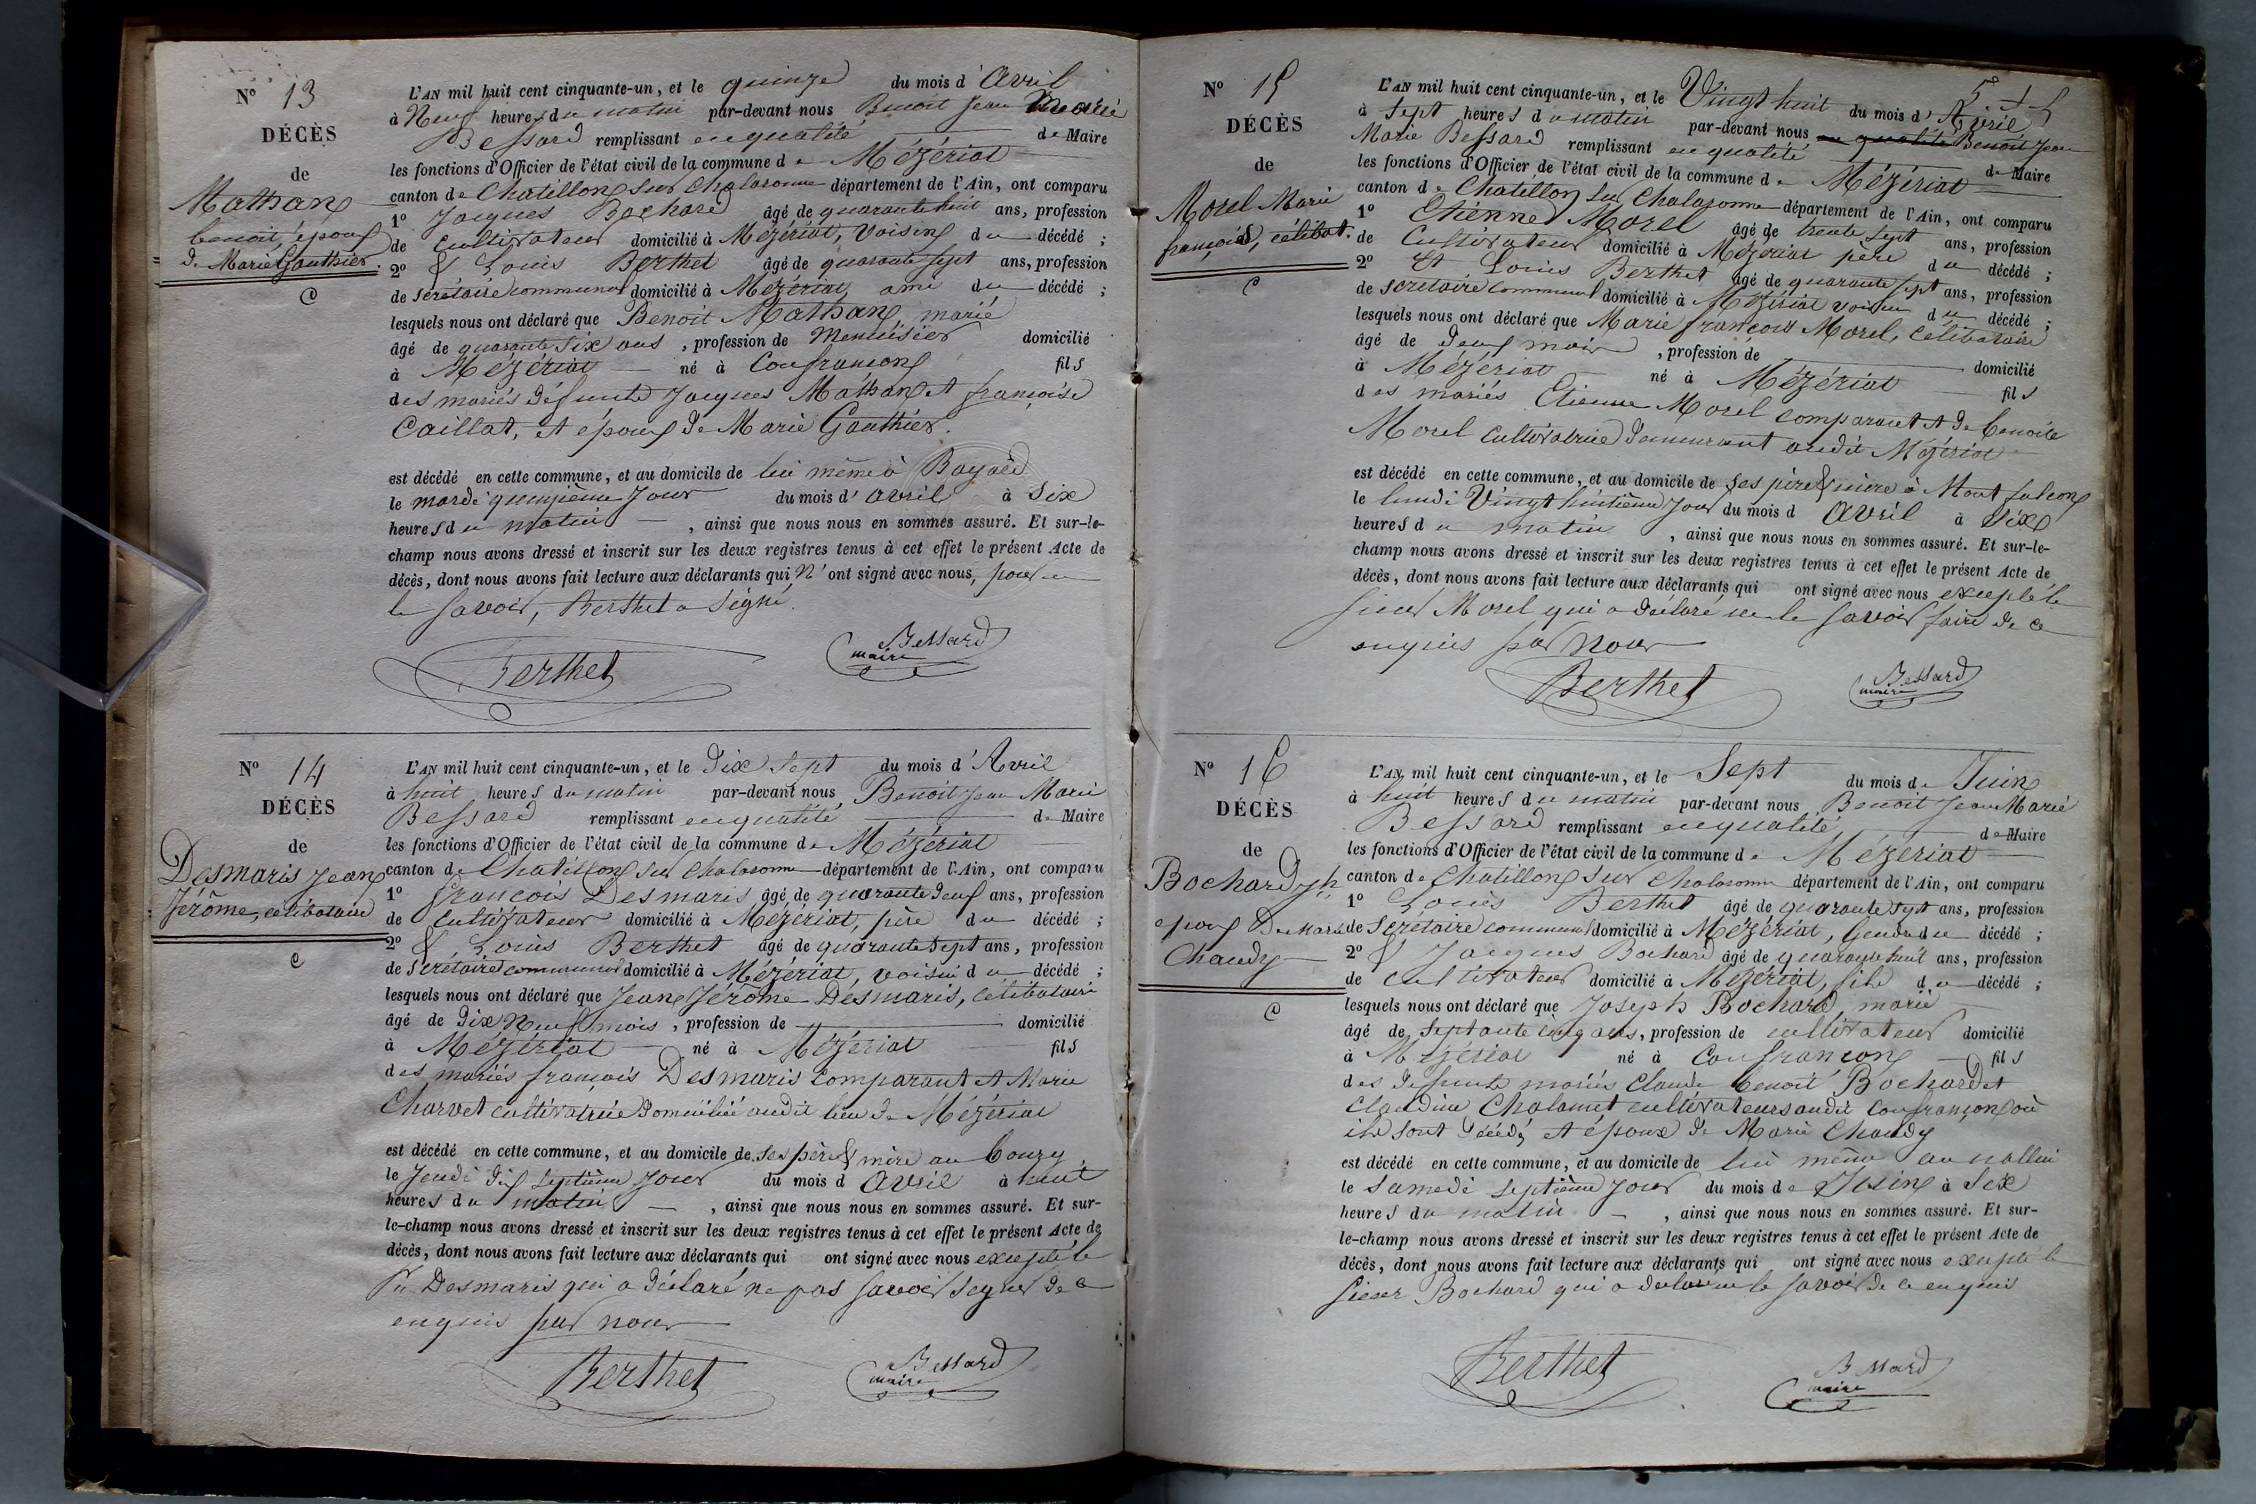 N° 13
DÉCÈS
de
Mathan
benoit, époux
de Marie Gauthier
L'AN mil huit cent cinquante-un, et le quinze du mois d'Avril
à Neuf heures du matin par-devant nous Benoit Jean Marie
Bessard remplissant en qualité de Maire
les fonctions d'Officier de l'état civil de la commune de Mézériat
canton de Chatillon sur Chalaronne département de l'Ain, ont comparu
1° Jacques Bochard âgé de quarante huit ans, profession
de cultivateur domicilié à Mézériat, voisin du décédé ;
2° & Louis Berthet âgé de quarante sept ans, profession
de secrétaire communal domicilié à Mézériat, ami du décédé ;
lesquels nous ont déclaré que Benoit Mathan, marié
âgé de quarante six ans, profession de Menuisier domicilié
à Mézériat né à Confrançon fils
des mariés défunts Jacques Mathan et françoise
Caillat, et époux de Marie Gauthier.
est décédé en cette commune, et au domicile de lui même à Bayard
le mardi quinzième jour du mois d'avril à six
heures du matin, ainsi que nous nous en sommes assuré. Et sur-le-
champ nous avons dressé et inscrit sur les deux registres tenus à cet effet le présent Acte de
décès, dont nous avons fait lecture aux déclarants qui n'ont signé avec nous, pour ne
le savoir, Berthet a signé.
Berthet
Bessard
maire
N° 14
DÉCÈS
de
Desmaris Jean
Jérôme, célibataire
L'AN mil huit cent cinquante-un, et le dix sept du mois d'Avril
à huit heures du matin par-devant nous Benoit Jean Marie
Bessard remplissant en qualité de Maire
les fonctions d'Officier de l'état civil de la commune de Mézériat
canton de Chatillon sur Chalaronne département de l'Ain, ont comparu
1° françois Desmaris âgé de quarante deux ans, profession
de cultivateur domicilié à Mézériat, père du décédé ;
2° & Louis Berthet âgé de quarante sept ans, profession
de secrétaire communal domicilié à Mézériat, voisin du décédé ;
lesquels nous ont déclaré que Jean Jérôme Desmaris, célibataire
âgé de dix Neuf mois, profession de domicilié
à Mézériat né à Mézériat fils
des mariés françois Desmaris comparant et Marie
Charvet cultivatrice domiciliée audit lieu de Mézériat
est décédé en cette commune, et au domicile de ses père & mère au bourg
le jeudi dix septième jour du mois d avril à huit
heures du matin, ainsi que nous nous en sommes assuré. Et sur-
le-champ nous avons dressé et inscrit sur les deux registres tenus à cet effet le présent Acte de
décès, dont nous avons fait lecture aux déclarants qui ont signé avec nous excepté le
Sr Desmaris qui a déclaré ne pas savoir signer de ce
enquis par nous
Berthet
Bessard
maire
N° 15
DÉCÈS
de
Morel Marie
françois, célibat.
L'AN mil huit cent cinquante-un, et le Vingt huit du mois d'Avril
à sept heures du matin par-devant nous en qualité Benoit Jean
Marie Bessard remplissant en qualité de Maire
les fonctions d'Officier de l'état civil de la commune de Mézériat
canton de Chatillon sur Chalaronne département de l'Ain, ont comparu
1° Etienne Morel âgé de trente sept ans, profession
de Cultivateur domicilié à Mézériat père du décédé ;
2° Et Louis Berthet âgé de quarante sept ans, profession
de secretaire communal domicilié à Mézériat voisin du décédé ;
lesquels nous ont déclaré que Marie françois Morel, célibataire
âgé de deux mois, profession de domicilié
à Mézériat né à Mézériat fils
des mariés Etienne Morel comparant et de benoite
Morel cultivatrice demeurant audit Mézériat
est décédé en cette commune, et au domicile de ses père & mère à Mont falcon
le lundi Vingt huitième jour du mois d avril à six
heures du matin, ainsi que nous nous en sommes assuré. Et sur-le-
champ nous avons dressé et inscrit sur les deux registres tenus à cet effet le présent Acte de
décès, dont nous avons fait lecture aux déclarants qui ont signé avec nous excepté le
sieur Morel qui a déclaré ne le savoir faire de ce
enquis par nous
Berthet
Bessard
maire
N° 16
DÉCÈS
de
Bochard jh
époux De Marie
Chaudy
L'AN mil huit cent cinquante-un, et le Sept du mois de Juin
à huit heures du matin par-devant nous Benoit Jean Marie
Bessard remplissant en qualité de Maire
les fonctions d'Officier de l'état civil de la commune de Mézériat
canton de Chatillon sur Chalaronne département de l'Ain, ont comparu
1° Louis Berthet âgé de quarante sept ans, profession
de secrétaire communal domicilié à Mézériat, Gendre du décédé ;
2° & Jacques Bochard âgé de quarante huit ans, profession
de cultivateur domicilié à Mézériat, fils du décédé ;
lesquels nous ont déclaré que Joseph Bochard, marié
âgé de septante cinq ans, profession de cultivateur domicilié
à Mézériat né à Confrançon fils
des defunts mariés claude benoit Bochard et
Claudine Chalamet cultivateurs audit Confrançon où
ils sont décédés et époux de Marie Chaudy
est décédé en cette commune, et au domicile de lui même au
le samedi septième jour du mois de Juin à Six
heures du matin, ainsi que nous nous en sommes assuré. Et sur-
le-champ nous avons dressé et inscrit sur les deux registres tenus à cet effet le présent Acte de
décès, dont nous avons fait lecture aux déclarants qui ont signé avec nous excepté le
sieur Bochard qui a déclaré ne le savoir de ce enquis
Berthet
Bessard
maire